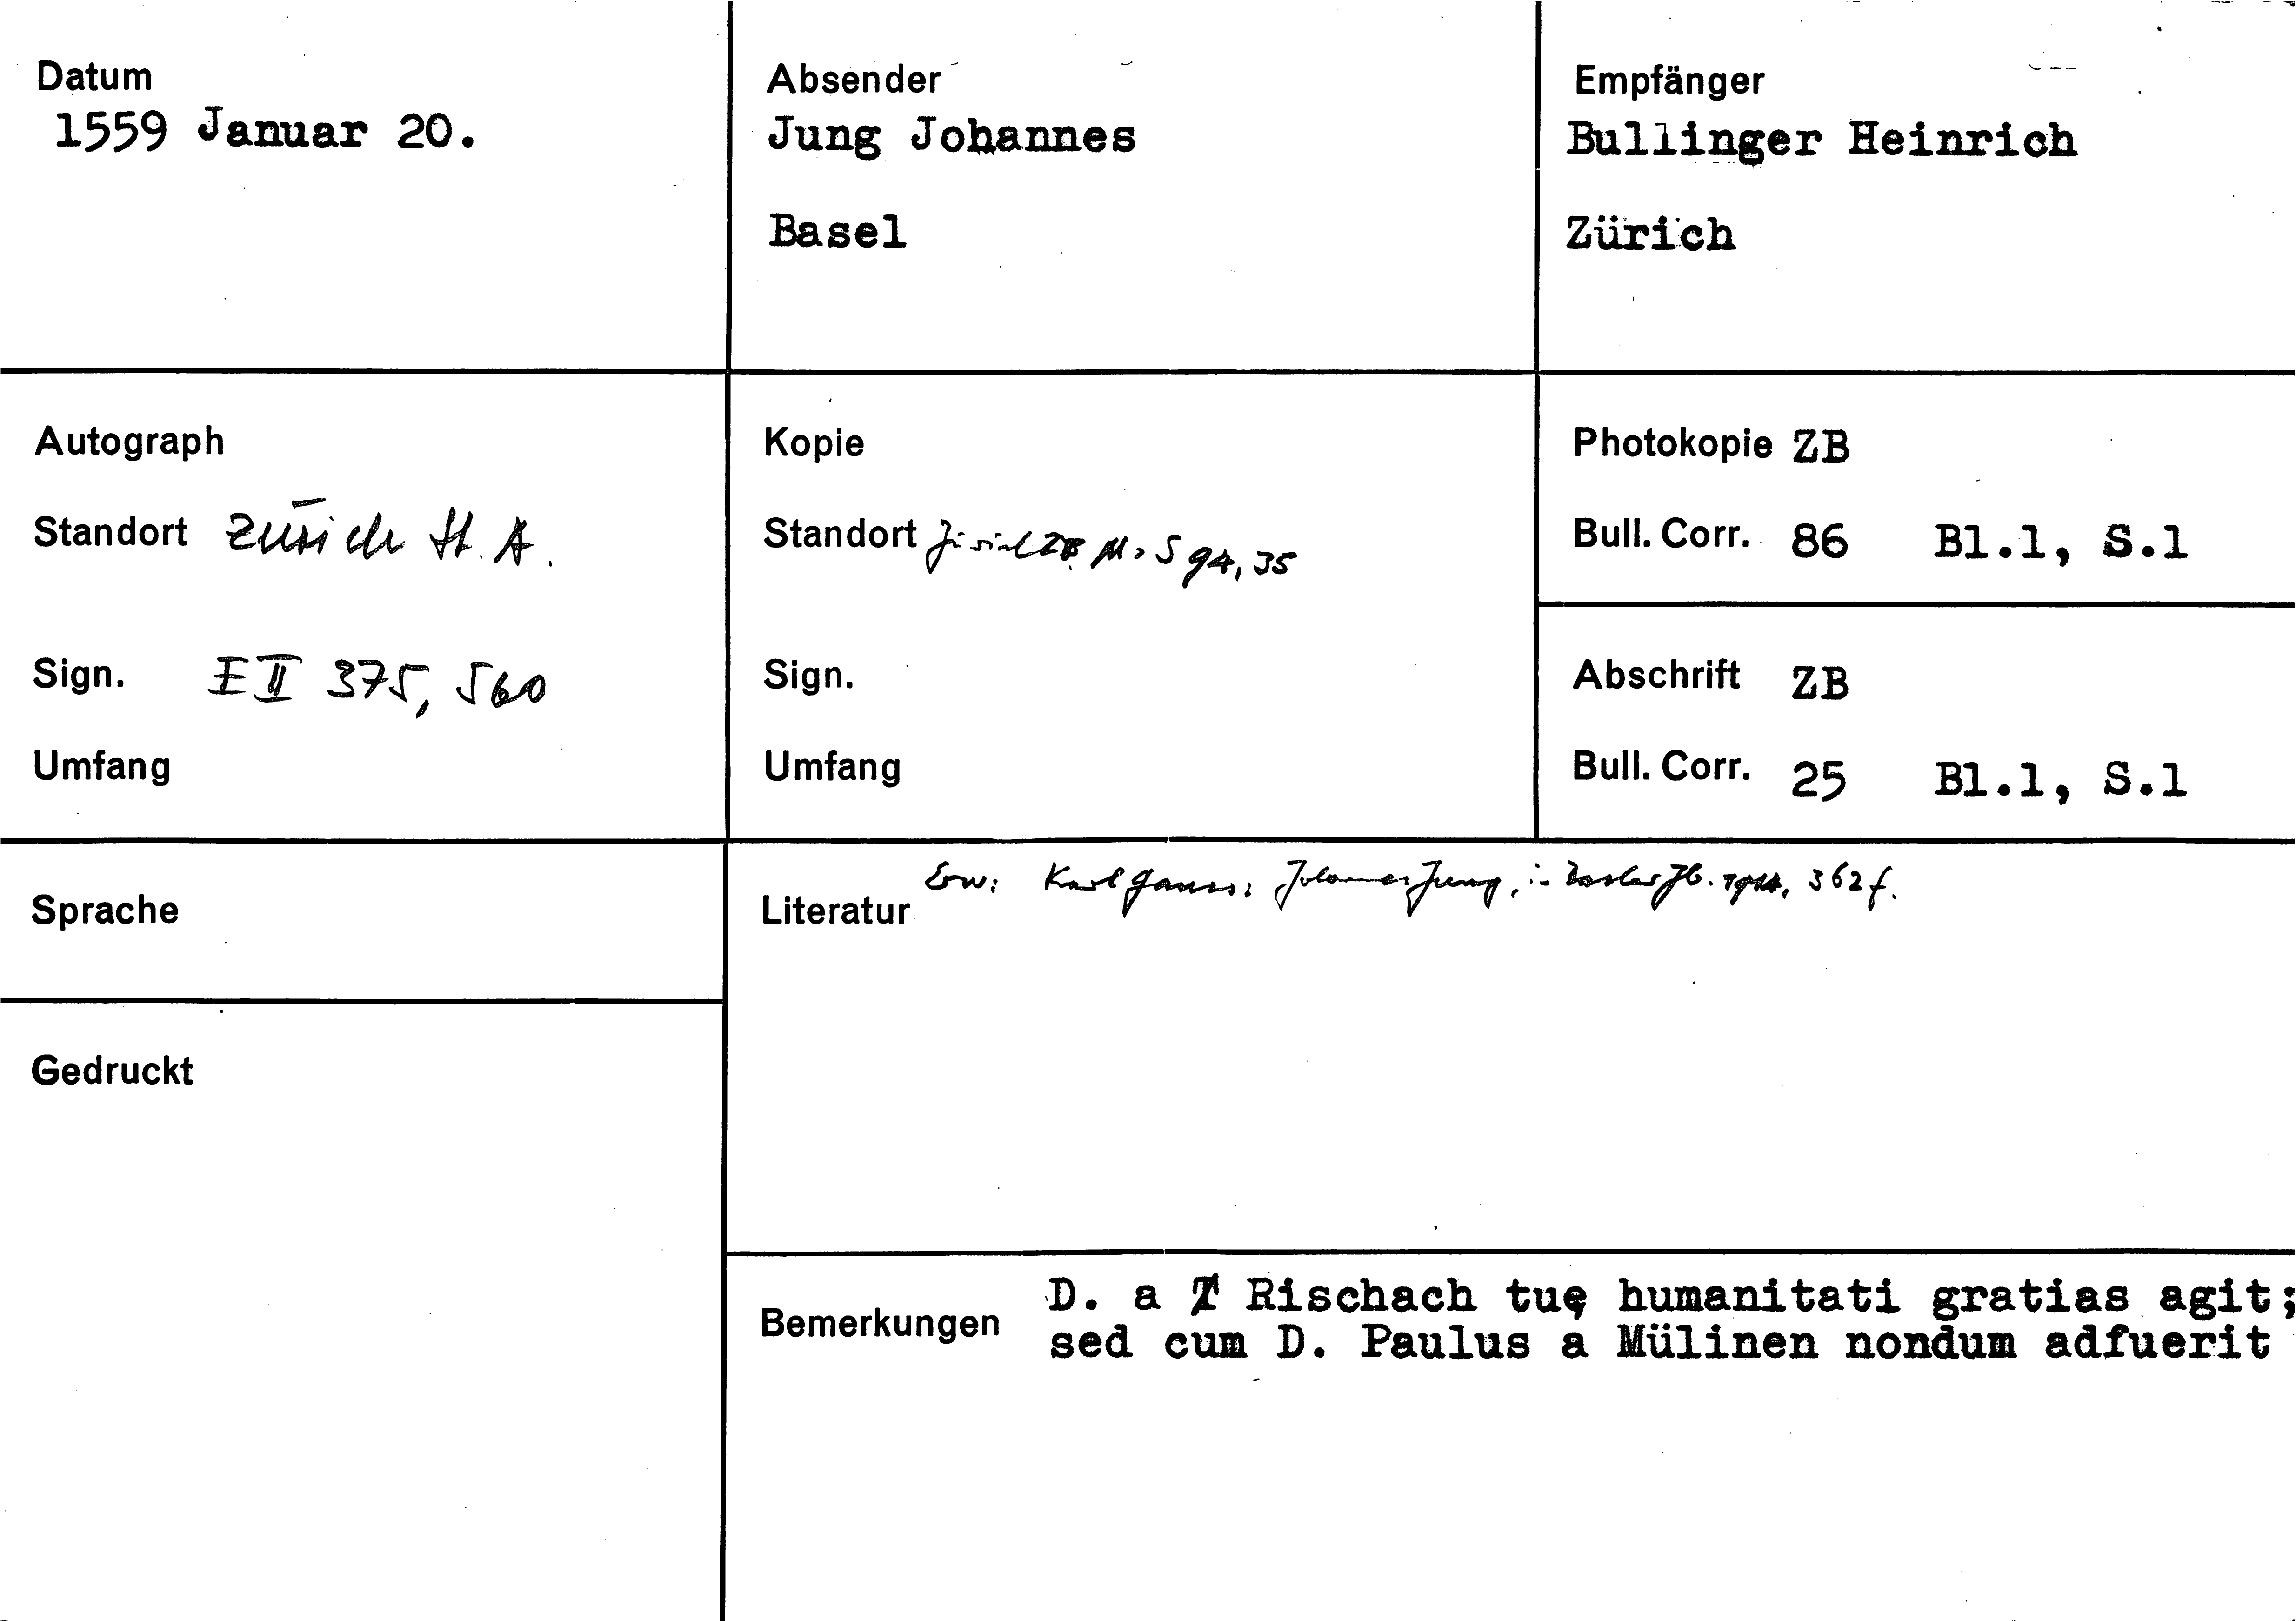 Datum
1559 Januar 20.
Absender
Jung Johannes
Basel
Empfänger
Bullinger Heinrich
Zürich
Autograph
Standort Zürich StA.
Sign. E II 375, 560
Umfang
Kopie
Standort Zürich ZB Ms S 94, 35
Sign.
Umfang
Photokopie ZB
Bull. Corr. 86 Bl.1, S.1
Abschrift ZB
Bull. Corr. 25 Bl.1, S.1
Sprache
Literatur Erw: Karl Gauss: Johannes Jung, in Basler Jb. 362 f.
Gedruckt
Bemerkungen D. a Rischach tuę humanitati gratias agit;
sed cum D. Paulus a Mülinen nondum adfuerit